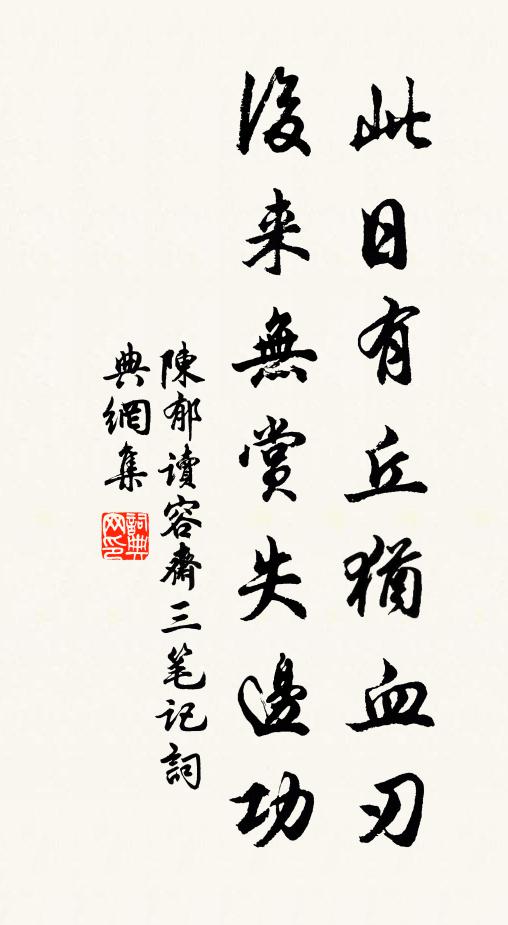 此日有丘猶血刃
後来無賞失邊功
陳郁讀容齋三笔記詞
典網集
詞典
网印